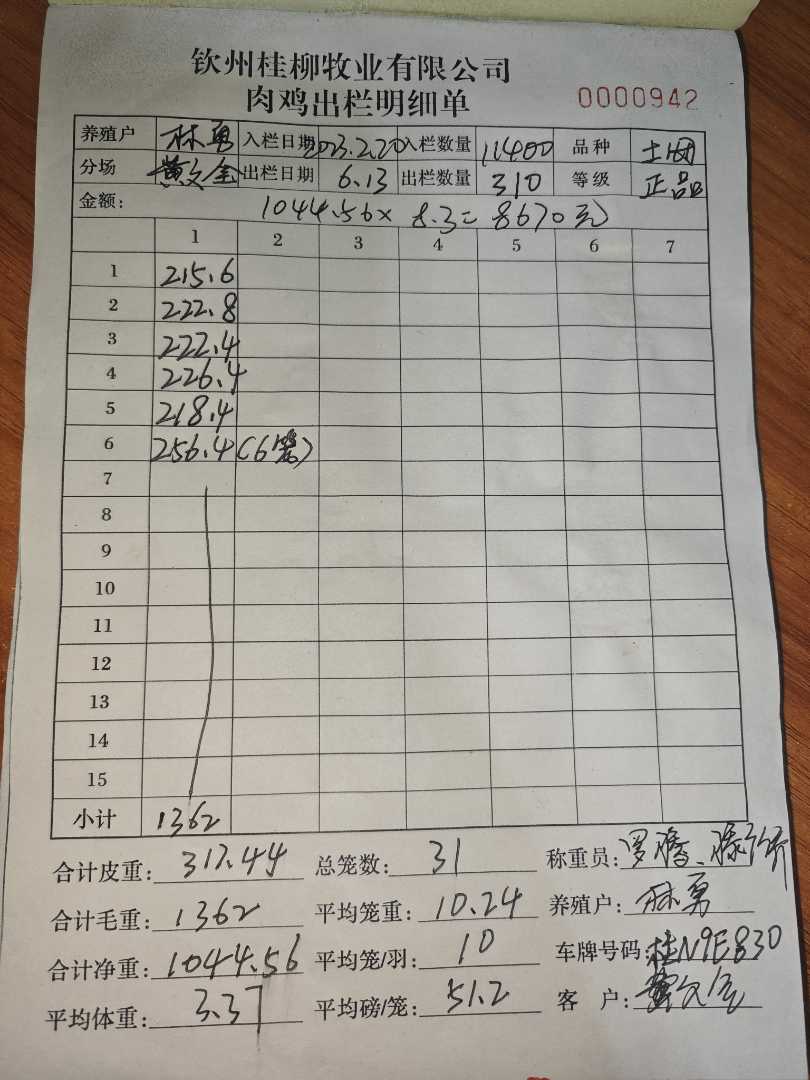 钦州桂柳牧业有限公司
肉鸡出栏明细单 0000942
养殖户 林勇 入栏日期 2023.2.20 入栏数量 11400 品种
分场 黄文金 出栏日期 6.13 出栏数量 310 等级 正品
金额: 1044.56× 8.3= 8670元
1 2 3 4 5 6 7
1 215.6
2 222.8
3 222.4
4 226.4
5 218.4
6 256.4 (6笼)
7
8
9
10
11
12
13
14
15
小计 1362
合计皮重: 317.44 总笼数: 31 称重员: 罗腾、
合计毛重: 1362 平均笼重: 10.24 养殖户: 林勇
合计净重: 1044.56 平均笼/羽: 10 车牌号码: 桂N9E830
平均体重: 3.37 平均磅/笼: 51.2 客 户: 黄文金